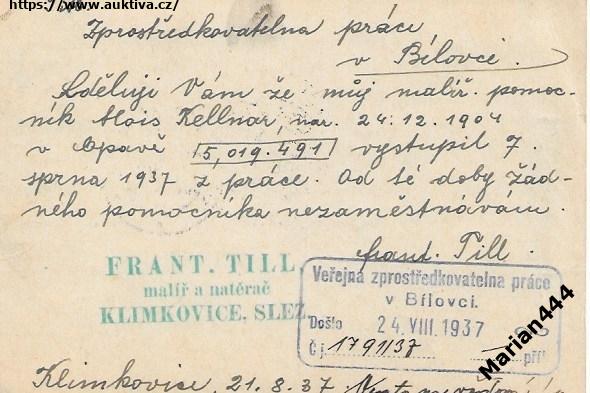 https://www.auktiva.cz/
Zprostředkovatelna práce
v Bílovci.
Sděluji Vám že můj malíř. pomoc-
ník Alois Kellnar, nar. 24.12.1904
v Opavě 5,019.491 vystoupil 7.
srpna 1937 z práce. Od té doby žád-
ného pomocníka nezaměstnávám.
Frant. Till.
FRANT. TILL,
malíř a natěrač
KLIMKOVICE, SLEZ.
Veřejná zprostředkovatelna práce
v Bílovci.
Došlo 24. VIII. 1937
Čj. 1791/37 příl.
Marian444
Klimkovice, 21.8.37.